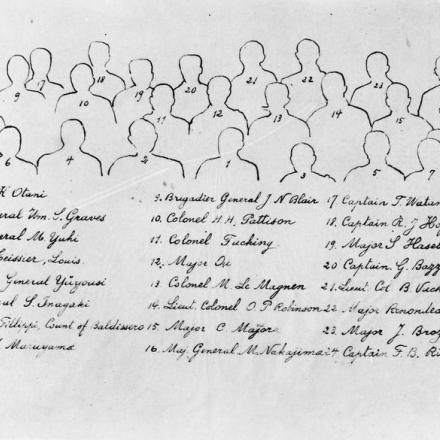 9 17 18 10 19 20 11 21 12 22 13 14 23 15
6 4 2 1 3 5 7
K Otani
eral Wm. S. Graves
eral M. Yuhi
eissier, Louis.
General Yüyousi
ral S. Inagaki
Fillippi, Count of Baldissero
Maruyama
9. Brigadier General J N Blair
10. Colonel H. H. Pattison
11. Colonel Fucking
12. Major Oi
13. Colonel M. Le Magnen
14. Lieut. Colonel O. P. Robinson
15. Major C. Major
16. Maj. General M. Nakajima
17 Captain T. Watan
18. Captain R. J Ho
19. Major S Hase
20 Captain G. Bazz
21. Lieut Col B. Vuch
22. Major
23. Major J. Broz
24 Captain F. B. Ri